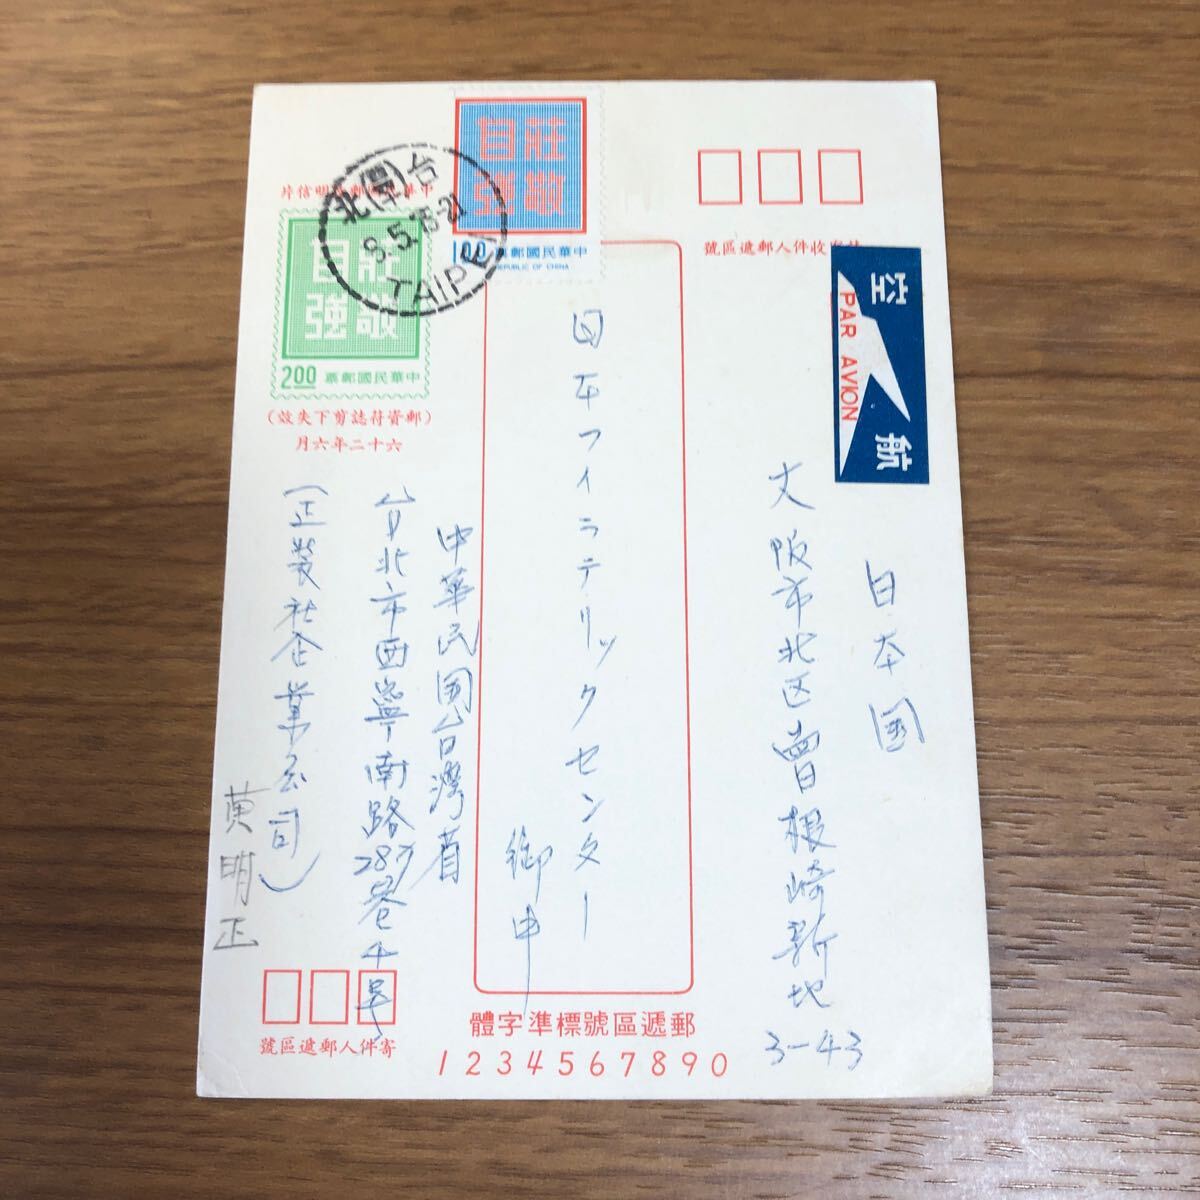 莊敬
自強
1.00 中華民國郵票
REPUBLIC OF CHINA
莊敬
自強
2.00 中華民國郵票
(郵資符誌剪下失效)
六十二年六月
台北
TAIPEI
航空
PAR AVION
收件人郵遞區號
日本国
大阪市北区曽根崎新地
3-43
日本フィラテリックセンター
御中
中華民国台灣省
台北市西寧南路287巷4号
(正裝社企業公司)
黄明正
寄件人郵遞區號
郵遞區號標準字體
1234567890